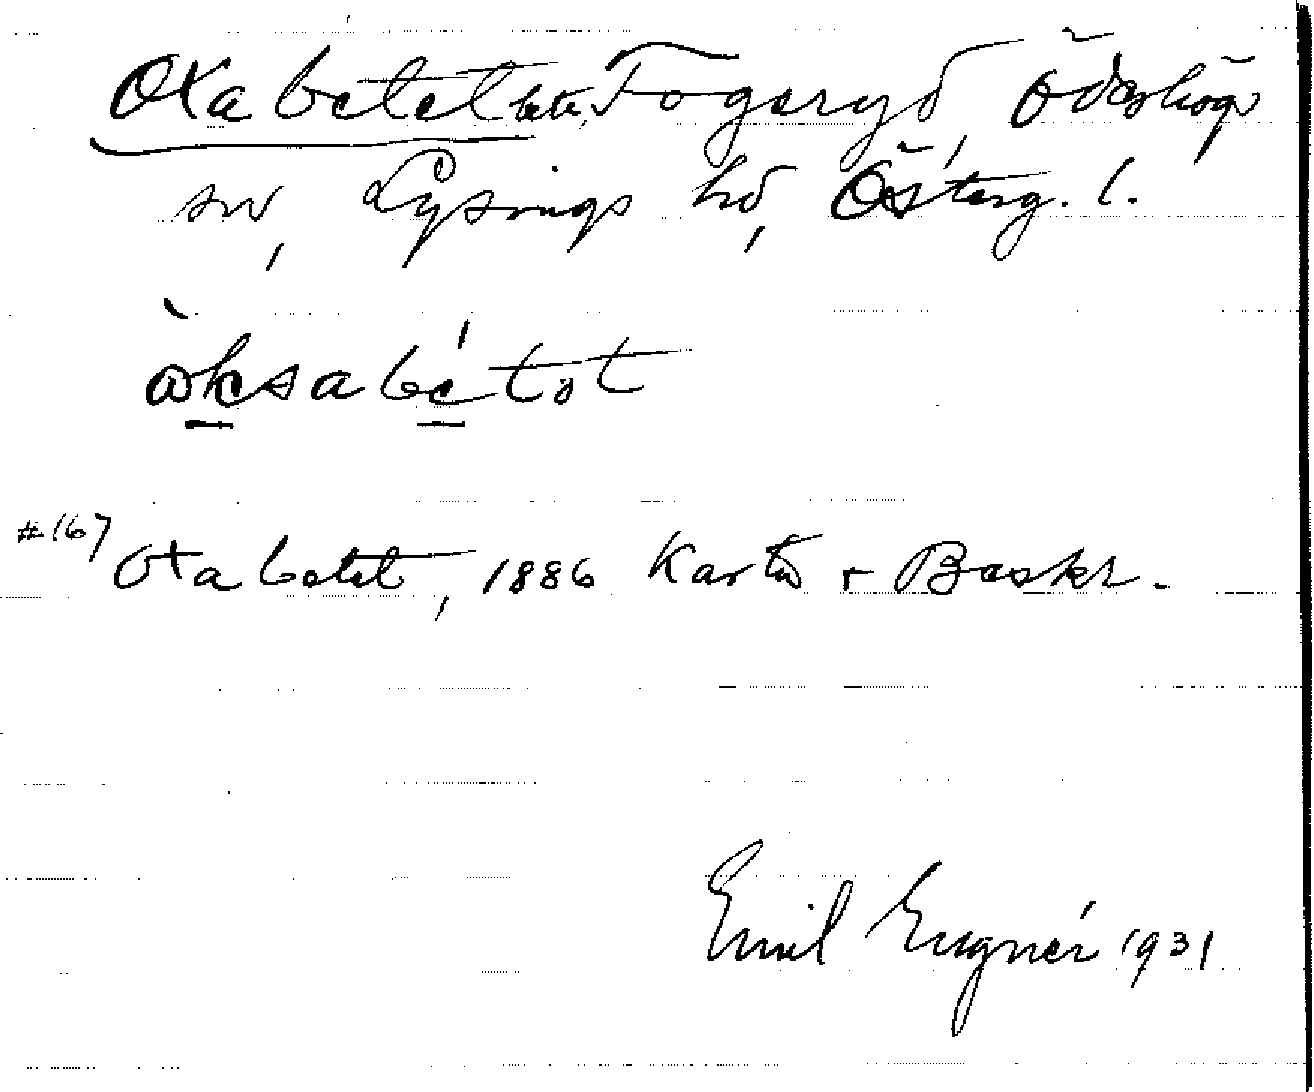 Oxabetet bete, Fogeryd, Ödeshögs
sn, Lysings hd, Österg. l.
òksabétət
#167 Oxabetet, 1886 Karta + Beskr.
Emil Eugnér 1931